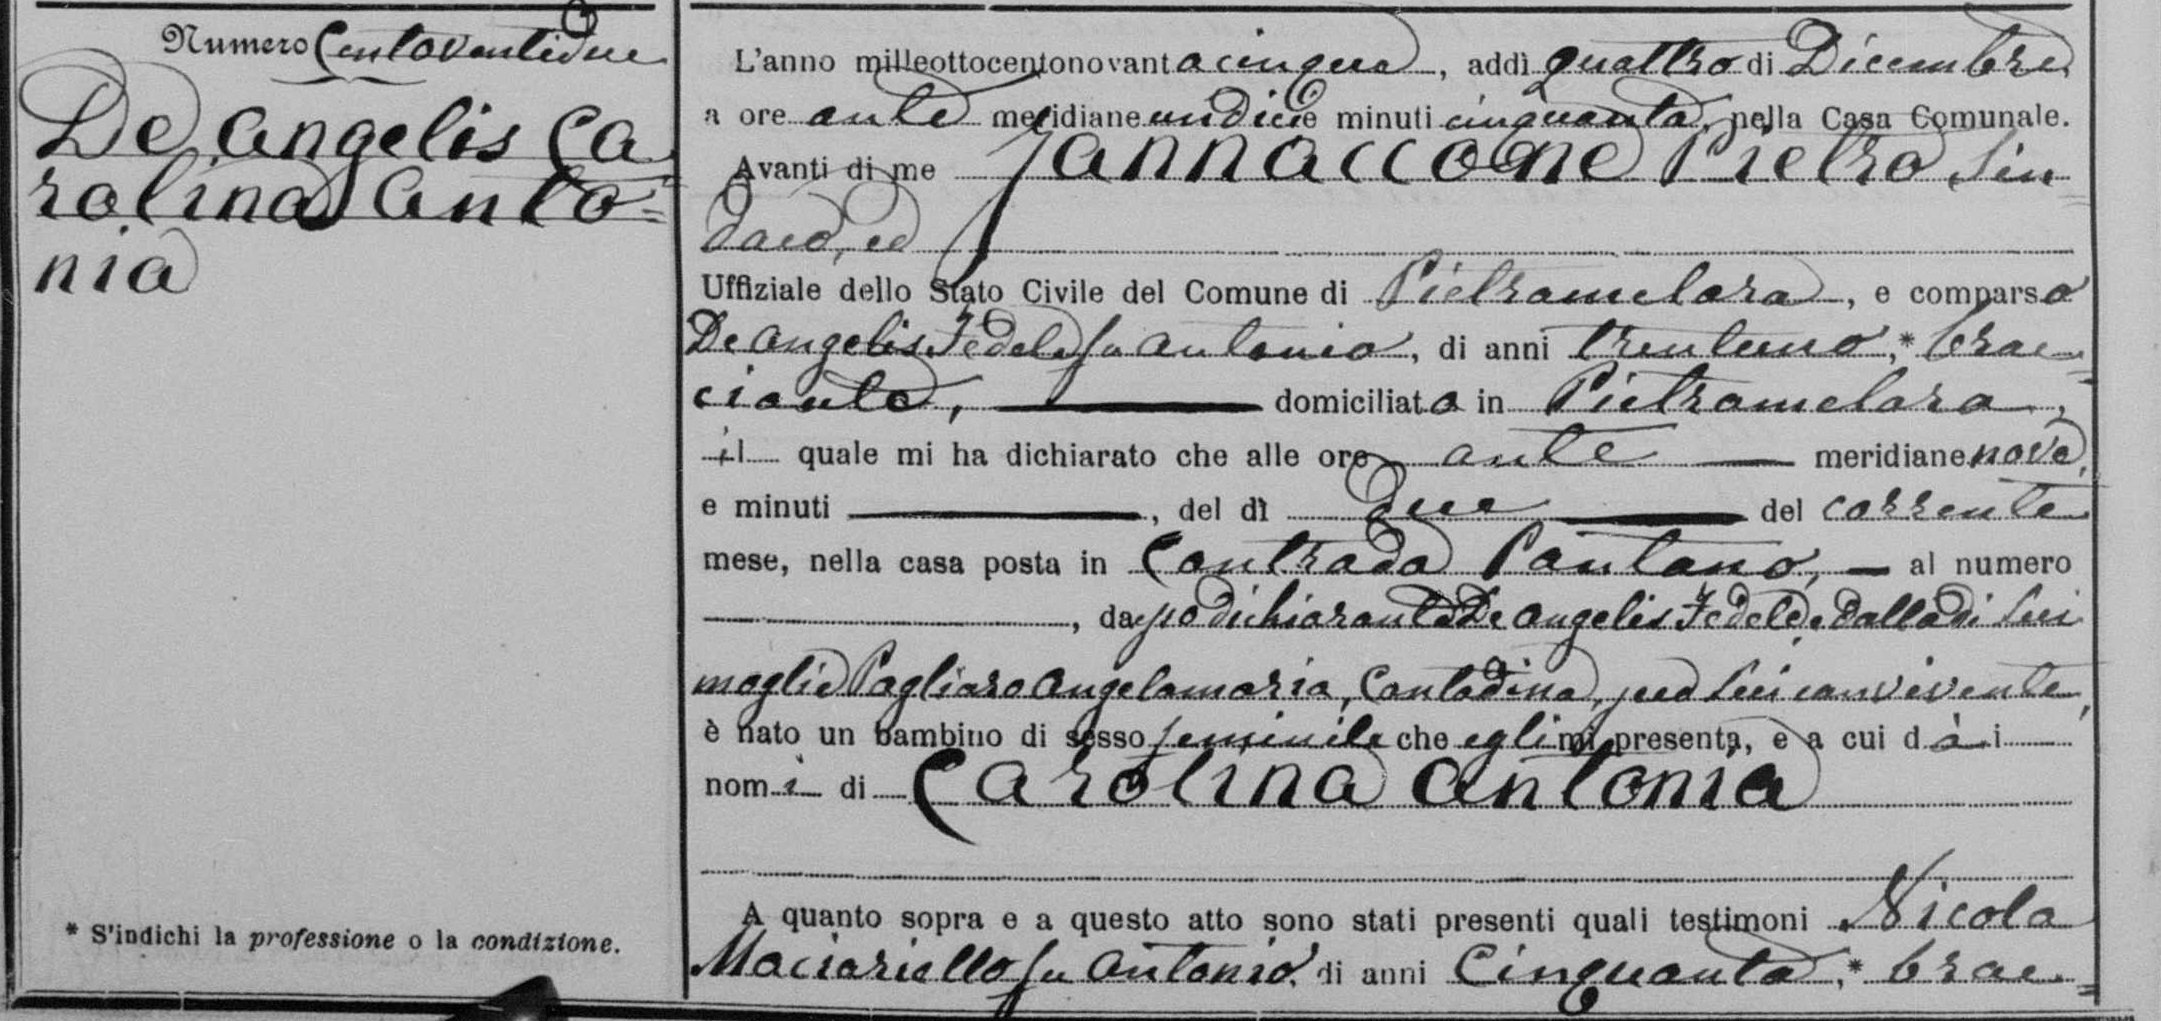 Numero Centoventidue
De Angelis Ca
rolina Anto=
nia
* S'indichi la professione o la condizione.
L'anno milleottocentonovantacinque, addì quattro di Dicembre
a ore ante meridiane undici e minuti cinquanta, nella Casa Comunale.
Avanti di me Iannaccone Pietro Sin
daco, ed
Uffiziale dello Stato Civile del Comune di Pietramelara, e comparso
De Angelis Fedele fu Antonio, di anni trentuno,* brac=
ciante, domiciliato in Pietramelara,
il quale mi ha dichiarato che alle ore ante meridiane nove,
e minuti , del dì due del corrente
mese, nella casa posta in Contrada Pantano, al numero
, da esso dichiarante De Angelis Fedele, e dalla di lui
moglie Pagliaro Angelamaria, Contadina, seco lui convivente,
è nato un bambino di sesso feminile che egli mi presenta, e a cui dà i
nomi di Carolina Antonia
A quanto sopra e a questo atto sono stati presenti quali testimoni Nicola
Maciariello fu Antonio, di anni Cinquanta,* brac=